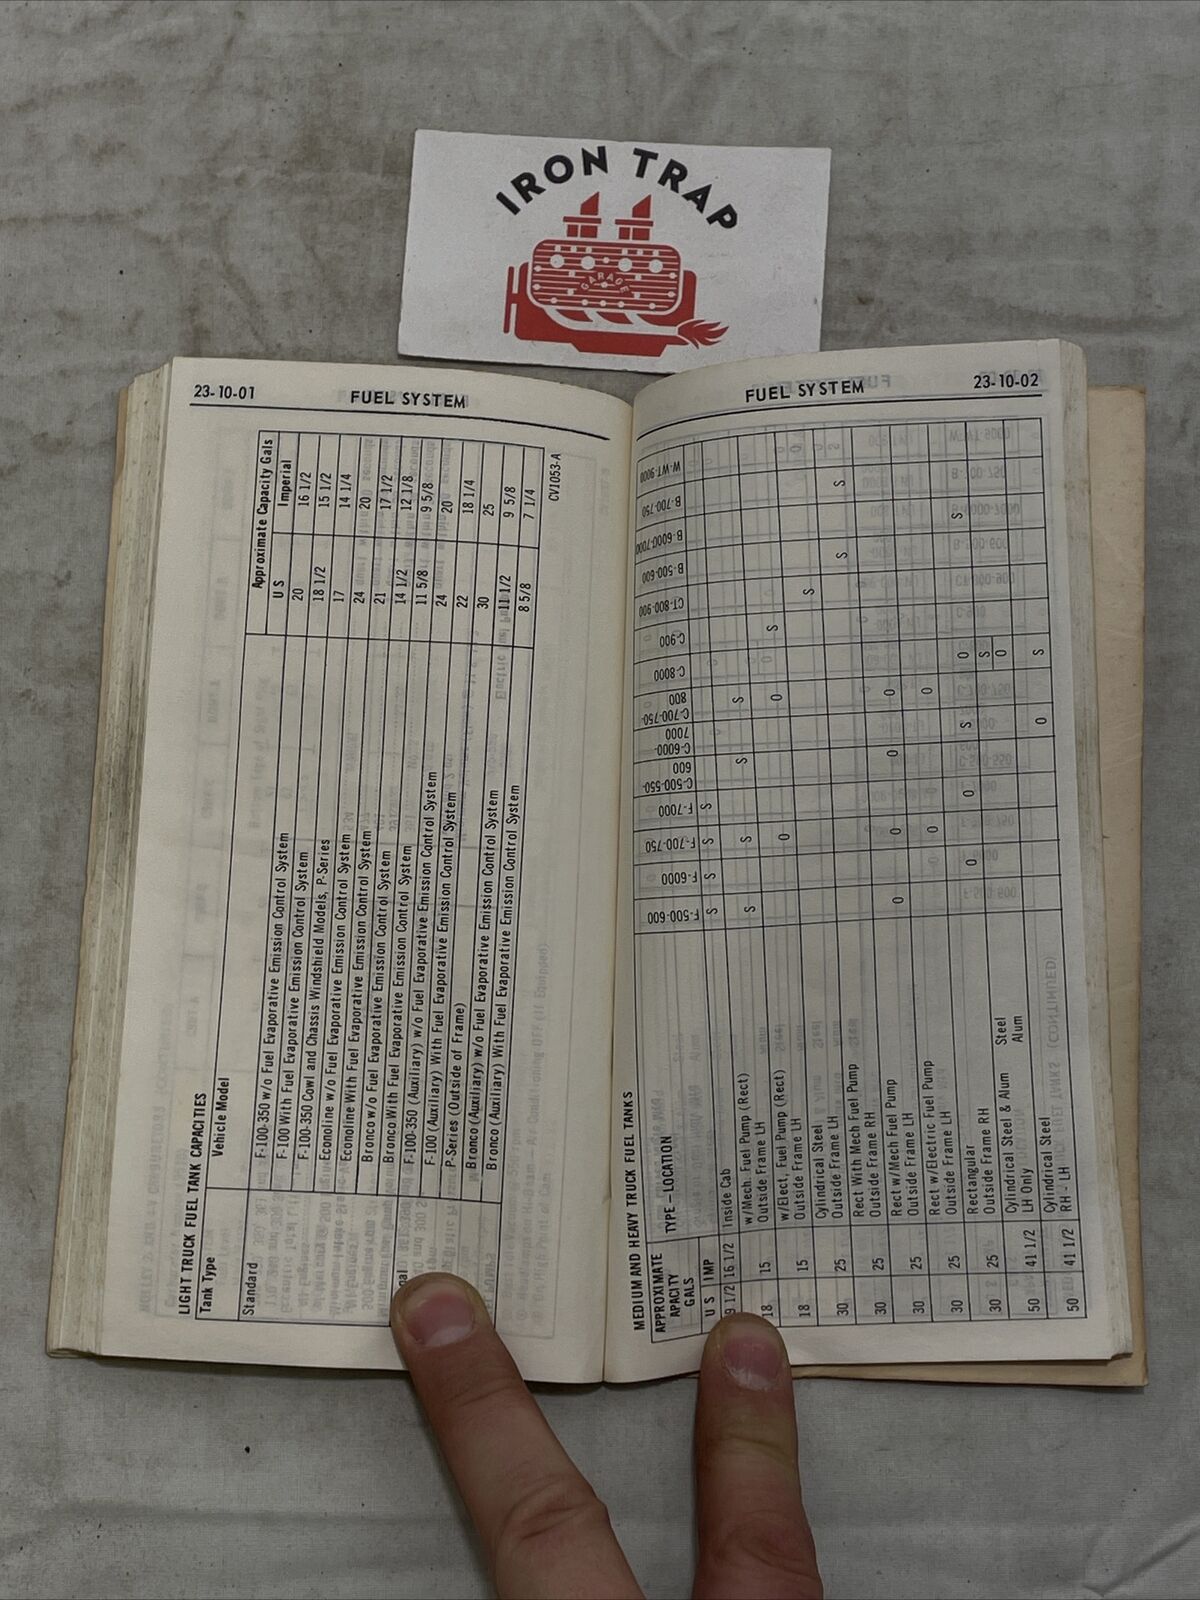 IRON TRAP
GARAGE
23-10-01 FUEL SYSTEM
LIGHT TRUCK FUEL TANK CAPACITIES
Tank Type Vehicle Model Approximate Capacity Gals
U S Imperial
Standard F-100-350 w/o Fuel Evaporative Emission Control System 20 16 1/2
F-100 With Fuel Evaporative Emission Control System 18 1/2 15 1/2
F-100-350 Cowl and Chassis Windshield Models, P-Series 17 14 1/4
Econoline w/o Fuel Evaporative Emission Control System 24 20
Econoline With Fuel Evaporative Emission Control System 21 17 1/2
Bronco w/o Fuel Evaporative Emission Control System 14 1/2 12 1/8
Bronco With Fuel Evaporative Emission Control System 11 5/8 9 5/8
F-100-350 (Auxiliary) w/o Fuel Evaporative Emission Control System 24 20
F-100 (Auxiliary) With Fuel Evaporative Emission Control System 22 18 1/4
P-Series (Outside of Frame) 30 25
Bronco (Auxiliary) w/o Fuel Evaporative Emission Control System 11 1/2 9 5/8
Bronco (Auxiliary) With Fuel Evaporative Emission Control System 8 5/8 7 1/4
CV1053-A
FUEL SYSTEM 23-10-02
MEDIUM AND HEAVY TRUCK FUEL TANKS
APPROXIMATE
APACITY
GALS
U S IMP
TYPE – LOCATION
F-500-600 F-6000 F-700-750 F-7000 C-500-550-600 C-6000-7000 C-700-750-800 C-8000 C-900 CT-800-900 B-500-600 B-6000-7000 B-700-750 W-WT-9000
9 1/2 16 1/2 Inside Cab S S S S
18 15 w/Mech. Fuel Pump (Rect) S S S S
Outside Frame LH
18 15 w/Elect, Fuel Pump (Rect) O O S
Outside Frame LH
30 25 Cylindrical Steel S
Outside Frame LH
30 25 Rect With Mech Fuel Pump S S
Outside Frame RH
30 25 Rect w/Mech Fuel Pump O O O O
Outside Frame LH
30 25 Rect w/Electric Fuel Pump O O
Outside Frame LH
30 25 Rectangular O O S O S
Outside Frame RH
50 41 1/2 Cylindrical Steel & Alum Steel S
LH Only Alum O
50 41 1/2 Cylindrical Steel O S
RH - LH